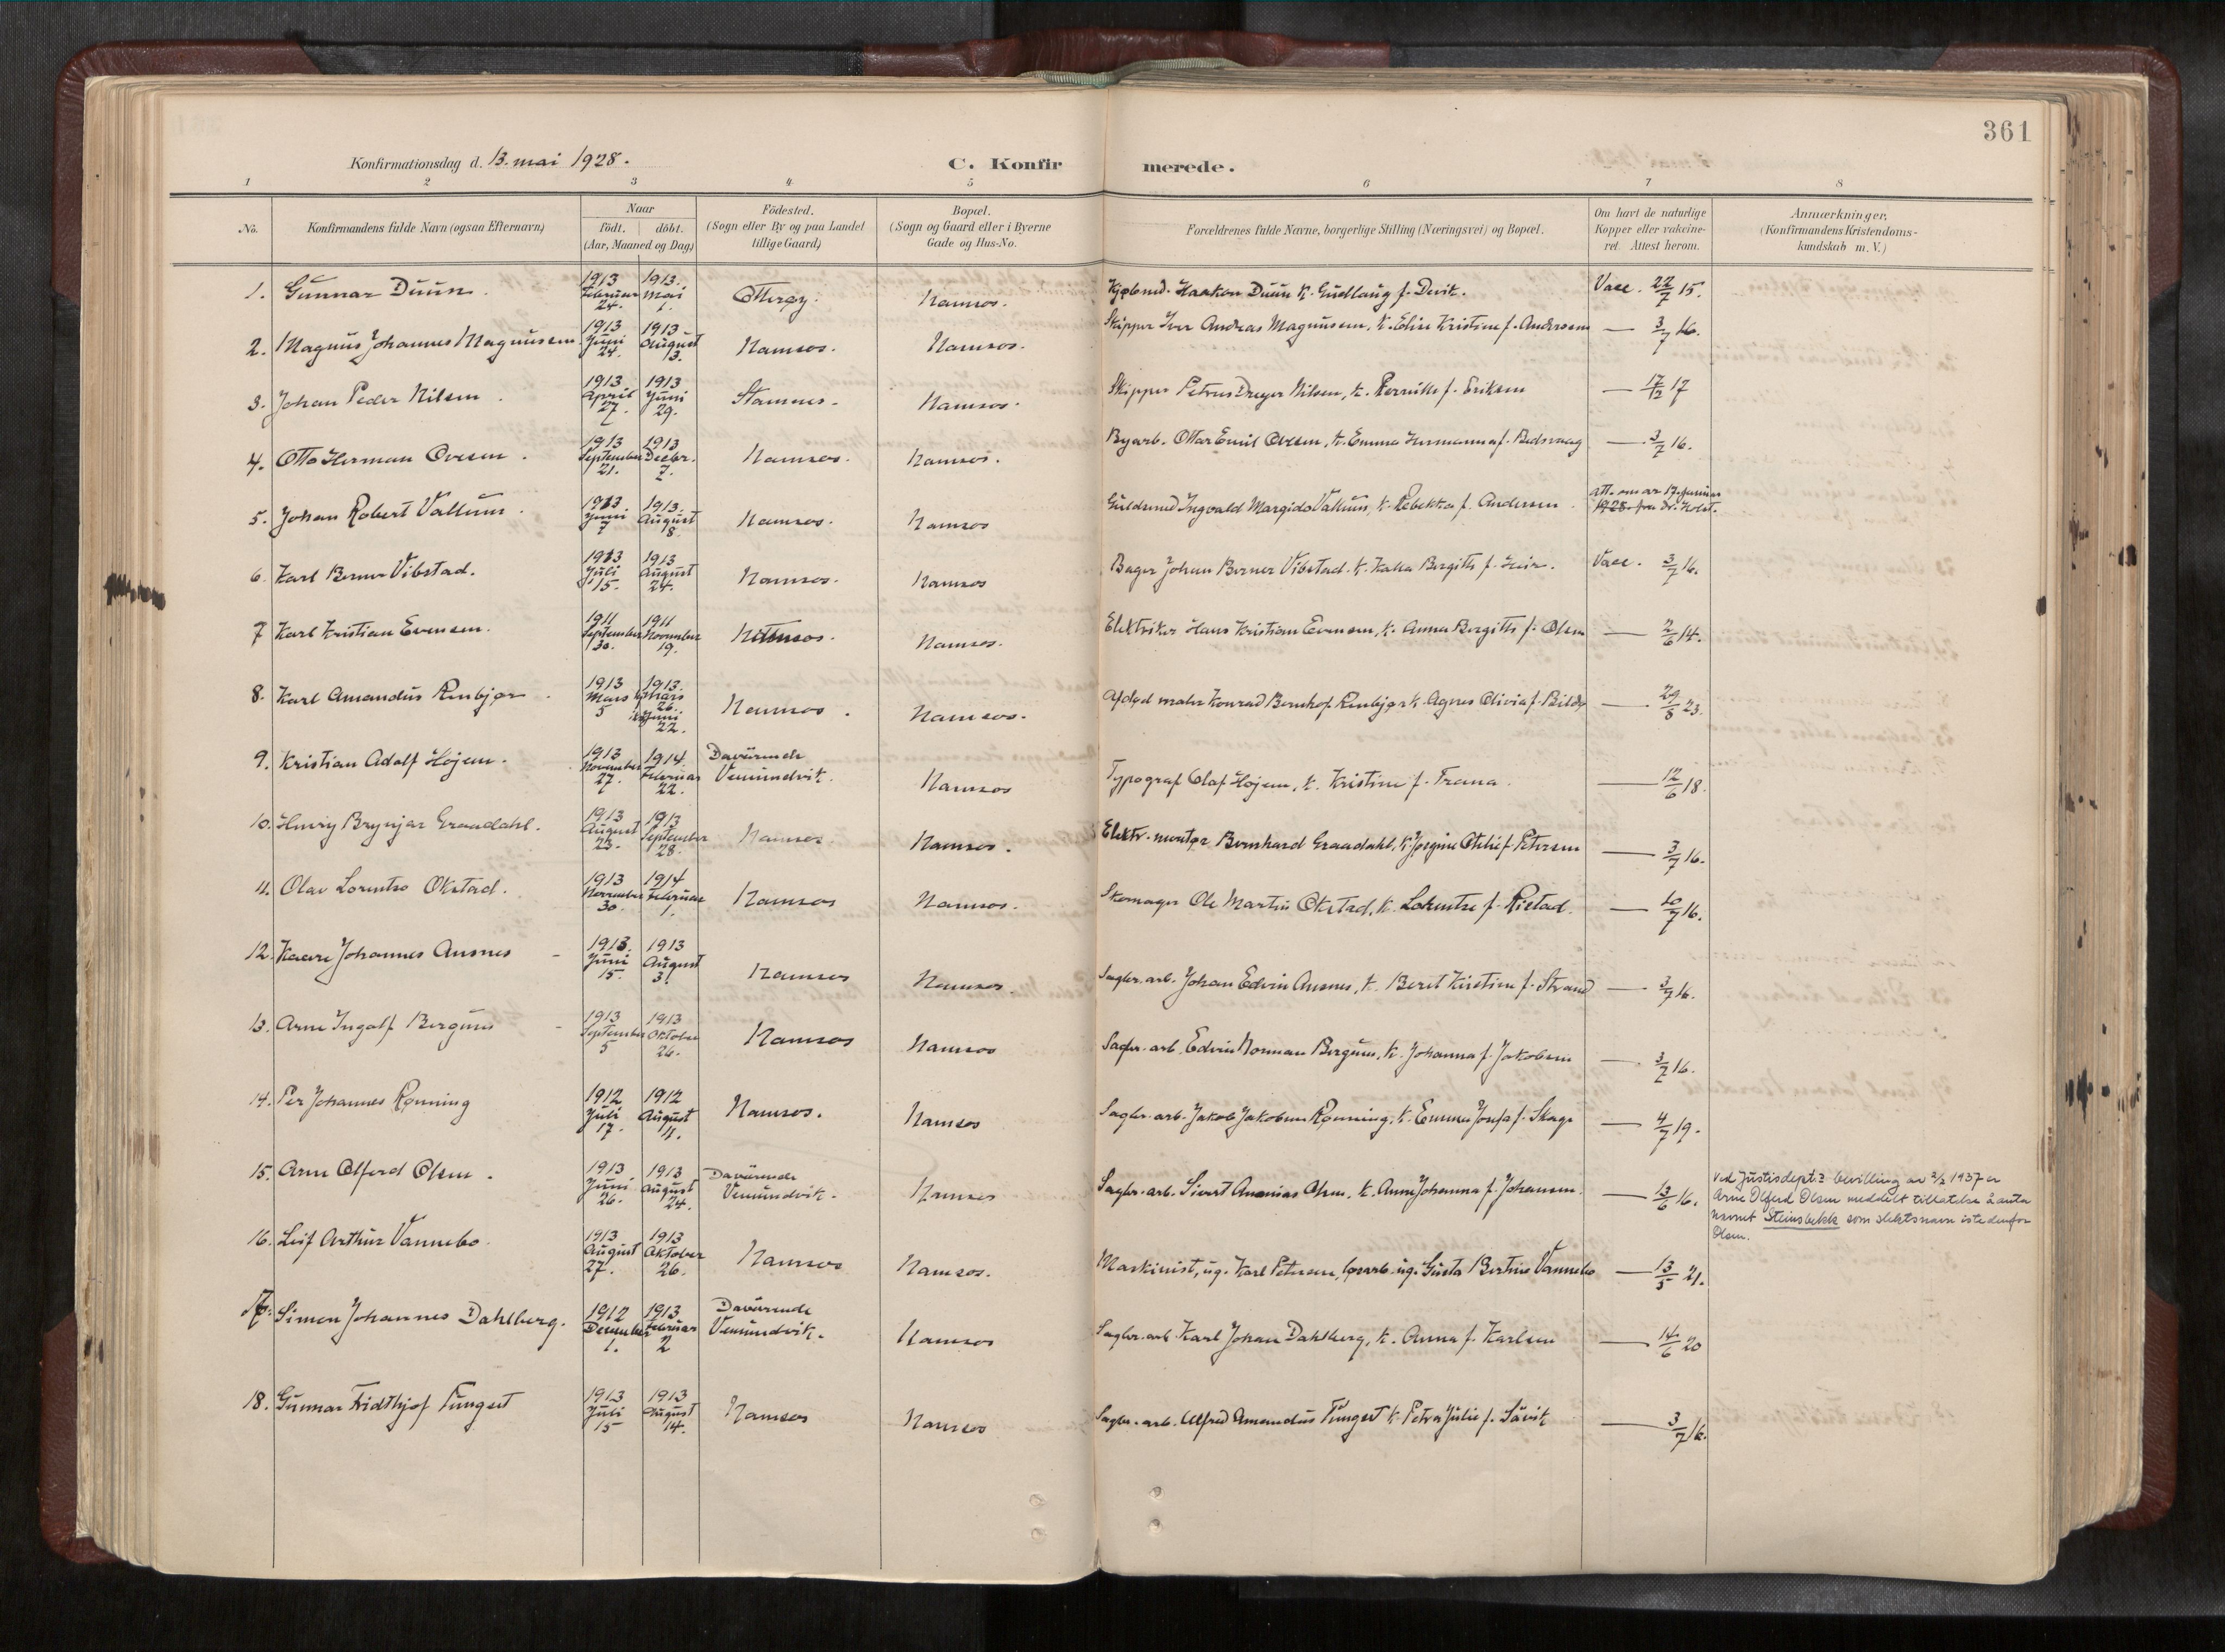 361
Konfirmationsdag d. 13. mai 1928.
C. Konfirmerede.
1 2 3 4 5 6 7 8
No.
Konfirmandens fulde Navn (ogsaa Efternavn)
Naar
født. døbt.
(Aar, Maaned og Dag)
Födested.
(Sogn eller By og paa Landet
tillige Gaard)
Bopæl.
(Sogn og Gaard eller i Byerne
Gade og Hus-No.
Forældrenes fulde Navne, borgerlige Stilling (Næringsvei) og Bopæl.
Om havt de naturlige
Kopper eller vakcine-
ret. Attest herom.
Anmærkninger.
(Konfirmandens Kristendoms-
kundskab m. V.)
1. Gunnar Duun. 1913 Februar 24. 1913. Mai 1. Otterøy. Namsos. Kjøbmd. Haakon Duun k. Gudlaug f. Devik. Vacc. 22/7 15.
2. Magnus Johannes Magnussen 1913 Juni 24. 1913 August 3. Namsos. Namsos. Skipper Iver Andreas Magnussen, k. Elise Kristine f. Anderssen — 3/7 16.
3. Johan Peder Nilsen. 1913 April 27. 1913 Juni 29. Stamnes. Namsos. Skipper Petrus Dreyer Nilsen, k. Pernille f. Eriksen — 17/12 17
4. Otto Herman Ovesen. 1913 September 21. 1913 Decbr. 7. Namsos. Namsos. Byarb. Ottar Emil Ovesen, k. Emma Hermanna f. — 3/7 16.
5. Johan Robert Vallum. 1913 Juni 7 1913. August 8. Namsos. Namsos Guldsmed Ingvald Margido Vallum, k. Rebekka f. Andersen. att. om av 17. januar
1928 fra dr. Holst.
6. Karl Berner Vibstad. 1913 Juli 15. 1913 August 24. Namsos. Namsos Bager Johan Berner Vibstad. k. Kalla Bergitte f. Heir. Vacc. 3/7 16.
7 Karl Kristian Evensen. 1911 September 30. 1911 November 19. Namsos. Namsos. Elektriker Hans Kristian Evensen, k. Anna Bergitte f. Olsen — 2/6 14.
8. Karl Amandus Renbjør. 1913 Mars 5 1913. Mars 26. Juni 22. Namsos. Namsos. Afdød maler Konrad Bernhof Renbjør k. Agnes Olivia f. — 29/8 23.
9. Kristian Adolf Højem. 1913 November 27. 1914. Februar 22. Daværende
Vemundvik. Namsos Typograf Olaf Højem, k. Kristine f. Frama. — 12/6 18.
10. Henry Brynjar Graadahl. 1913 August 23. 1913 September 28. Namsos. Namsos. Elektr. montør Bernhard Graadahl, k. Jørgine Otelie f. Petersen — 3/7 16.
11. Olav Lorentso Okstad. 1913 November 30. 1914 Februar 1. Namsos Namsos. Skomager Ole Martin Okstad, k. Lorentse f. Ristad. — 10/7 16.
12. Kaare Johannes Ausnes 1913. Juni 15. 1913 August 31 Namsos Namsos. Sagbr. arb. Johan Edvin Ausnes, k. Beret Kirstine f. Strand — 3/7 16.
13. Arne Ingolf Bergum 1913 September 5 1913 Oktober 26. Namsos Namsos Sagbr. arb. Edvin Norman Bergum, k. Johanna f. Jakobsen — 3/7 16.
14. Per Johannes Rønning 1912 Juli 17. 1912 August 11. Namsos. Namsos Sagbr. arb. Jakob Jakobsen Rønning, k. Emma Josefa f. Skage — 4/7 19.
15. Arne Olferd Olsen. 1913 Juni 26. 1913 August 24. Daværende
Vemundvik. Namsos Sagbr. arb. Sivert Ananias Olsen, k. Anne Johanna f. Johansen. — 13/6 16.
Ved Justisdept.s bevilling av 2/2 1937 er
Arne Olferd Olsen meddelt tillatelse å anta
navnet Steinsbekk som slektsnavn istedenfor
Olsen.
16. Leif Arthur Vannebo. 1913 August 27. 1913 Oktober 26. Namsos Namsos. Maskinist, ug. Karl Petersen, løsarb. ug. Gusta Bertine Vannebo — 13/5 21.
17. Simon Johannes Dahlberg. 1912 December 1. 1913 Februar 2 Daværende
Vemundvik. Namsos Sagbr. arb. Karl Johan Dahlberg, k. Anna f. Karlsen — 14/6 20
18. Gunnar Fridthjof Fingert 1913 Juli 15 1913 August 14. Namsos Namsos Sagbr. arb. Alfred Amandus Fingert k. Petra Julie f. Sævik — 3/7 16.